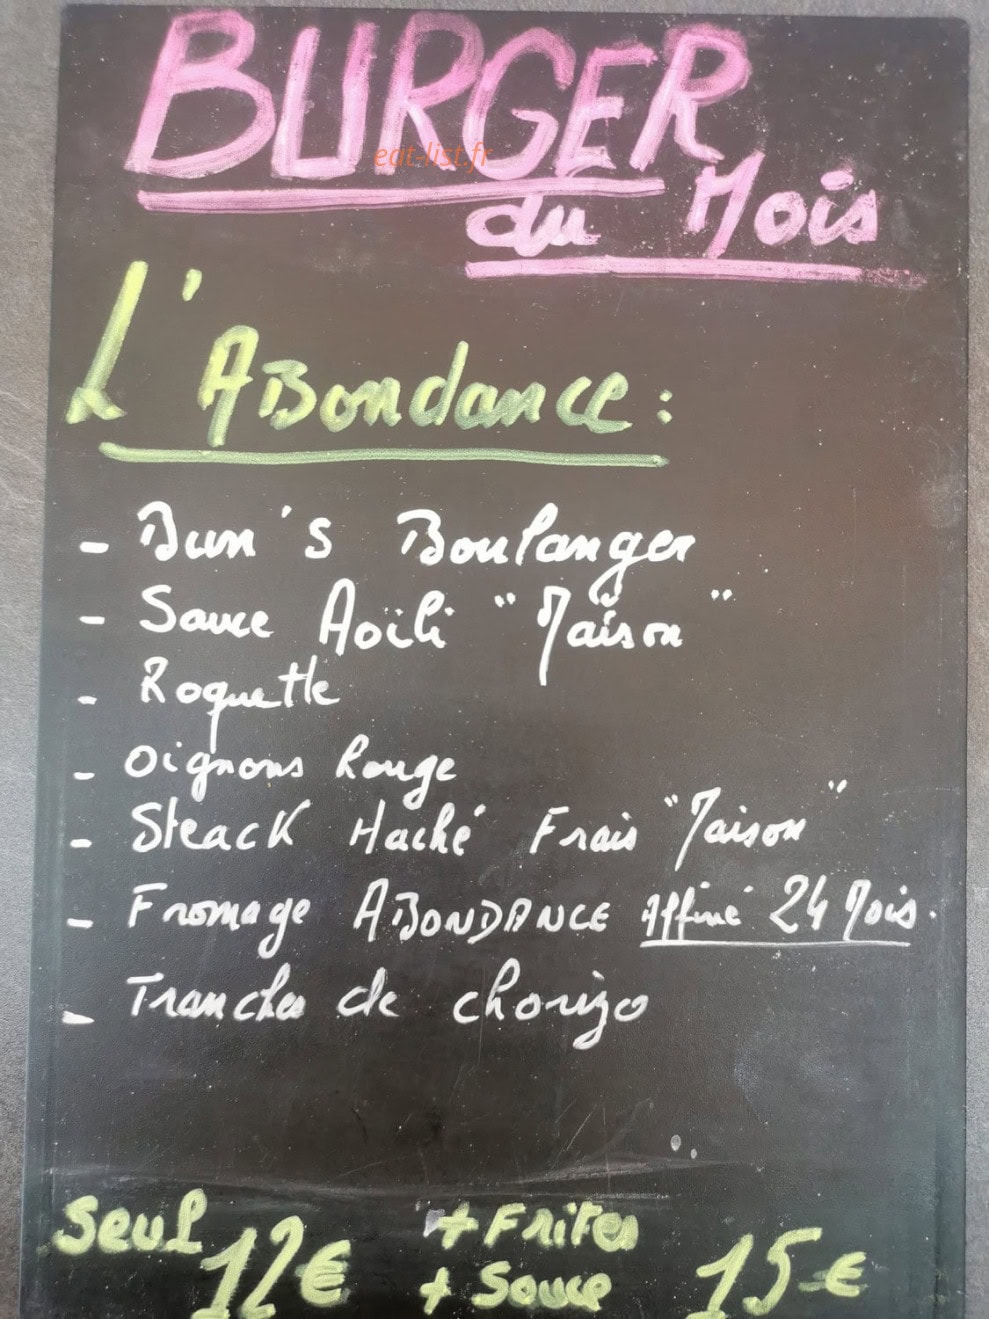 BURGER
eat-list.fr
du Mois
L'ABondance:
- Bun's Boulanger
- Sauce Aoïli "Maison"
- Roquette
- Oignons Rouge
- Steack Haché Frais "Maison"
- Fromage ABONDANCE Affiné 24 Mois.
- Tranches de chorizo
Seul 12€ + Frites
+ Sauce 15€